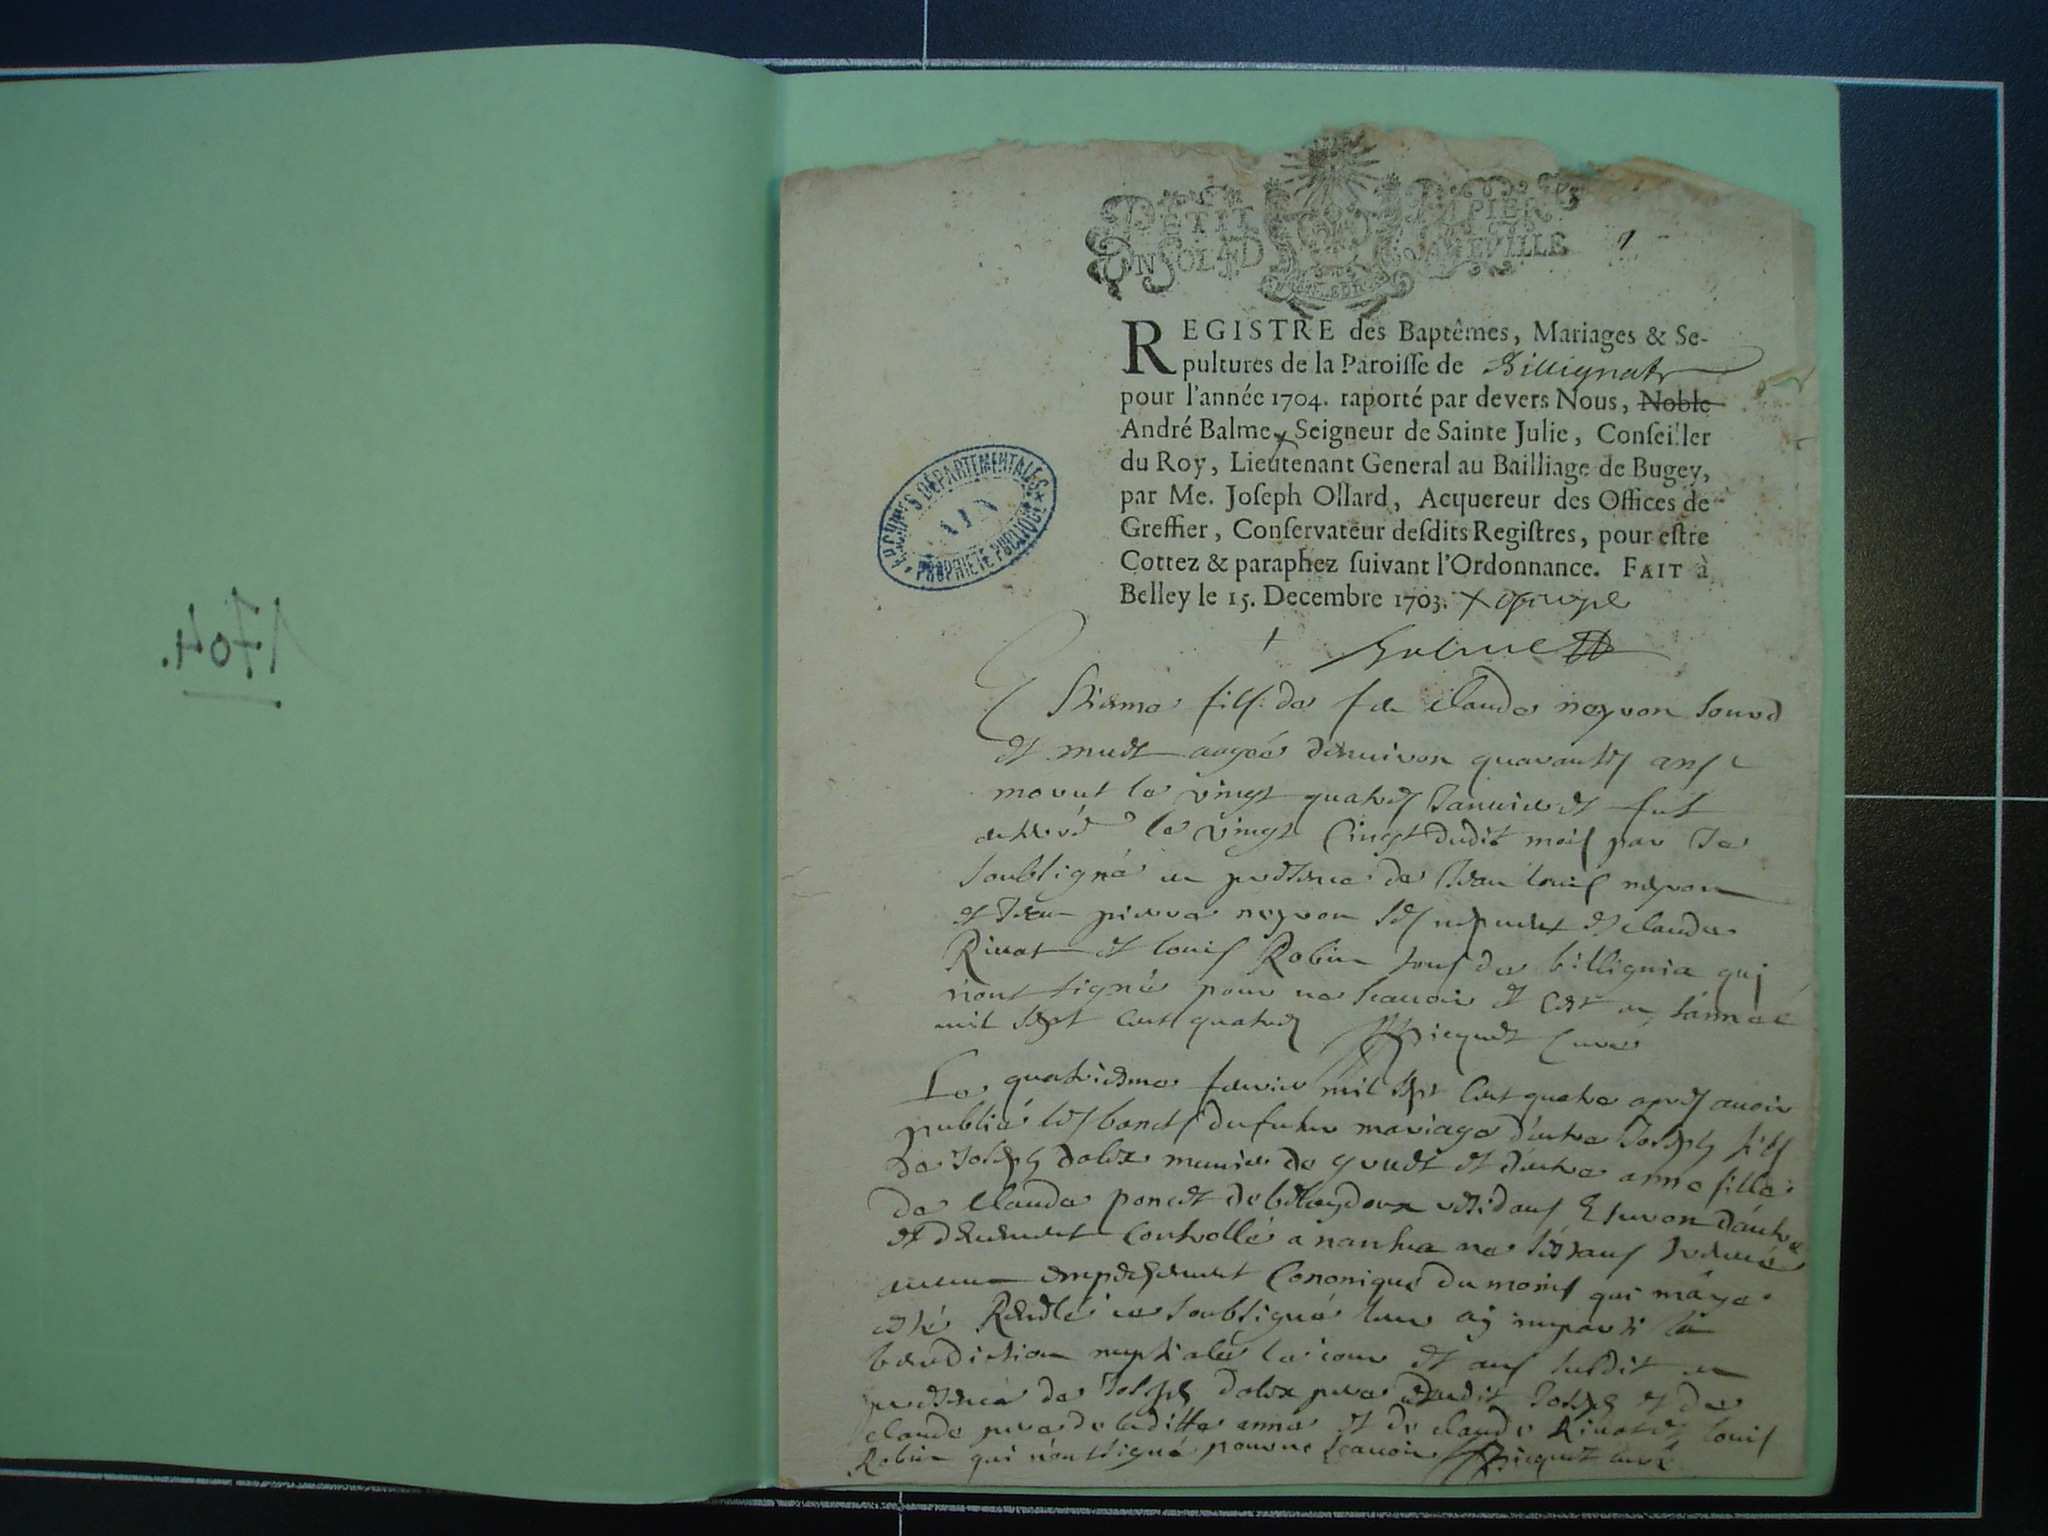 1704.
PETIT PAPIER
UN SOL LAD FEUILLE
REGISTRE des Baptêmes, Mariages & Se-
pultures de la Paroisse de Billignat
pour l'année 1704. raporté par devers Nous, Noble
André Balme, Seigneur de Sainte Julie, Conseiller
du Roy, Lieutenant General au Bailliage de Bugey,
par Me. Joseph Ollard, Acquereur des Offices de
Greffier, Conservateur desdits Registres, pour estre
Cottez & paraphez suivant l'Ordonnance. FAIT à
Belley le 15. Decembre 1703.
Balme
ARCHIVES DÉPARTEMENTALES
AIN
PROPRIÉTÉ PUBLIQUE
Estienne fils de feu Claude neyron sourd
et muet aagée denuiron quarantes ans
morut le vingt quatres Januier et fut
enterré le vingt Cinqt dudit mois par Je
soubsigné en presence de Jean louis neyron
et Jean pierre neyron ses nepueux et claude
Riuat et louis Robin tous de billignia qui
n'ont signé pour ne scauoir et C'est en l'année
mil sept cent quatres picquet Curé
Le quatriesme feurier mil sept Cent quatre apres auoir
publié les bancts du futur mariage d'entre Joseph fils
de Joseph dolix munier de et d'entre anne fille
de Claude poncet de residans d'autre
et deuement Controllé a nantua ne s'estant treuué
aucun empeschement Cononique du moins qui m'aye
esté Reuelé je soubsigné leur aij imparti la
benediction nuptiale le jour et ans susdit en
presence de Joseph dolix pere dudit Joseph et de
claude pere de laditte anne et de claude Riuat et louis
Robin qui n'ont signé pour ne scauoir picquet curé